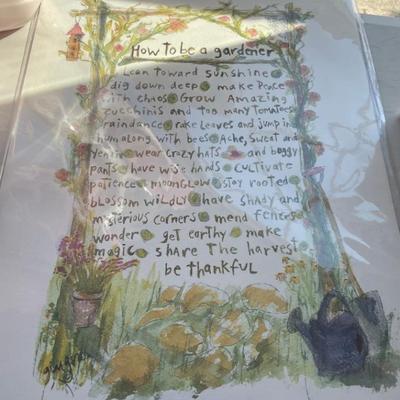 How to be a gardener
Lean toward sunshine
dig down deep make peace
with chaos Grow Amazing
zucchinis and too many Tomatoes
raindance rake leaves and jump in
hum along with bees Ache, sweat and
wear crazy hats and baggy
pants have wise hands cultivate
patience moonglow stay rooted
blossom wildly have shady and
mysterious corners mend fences
wonder get earthy make
magic share the harvest
be thankful